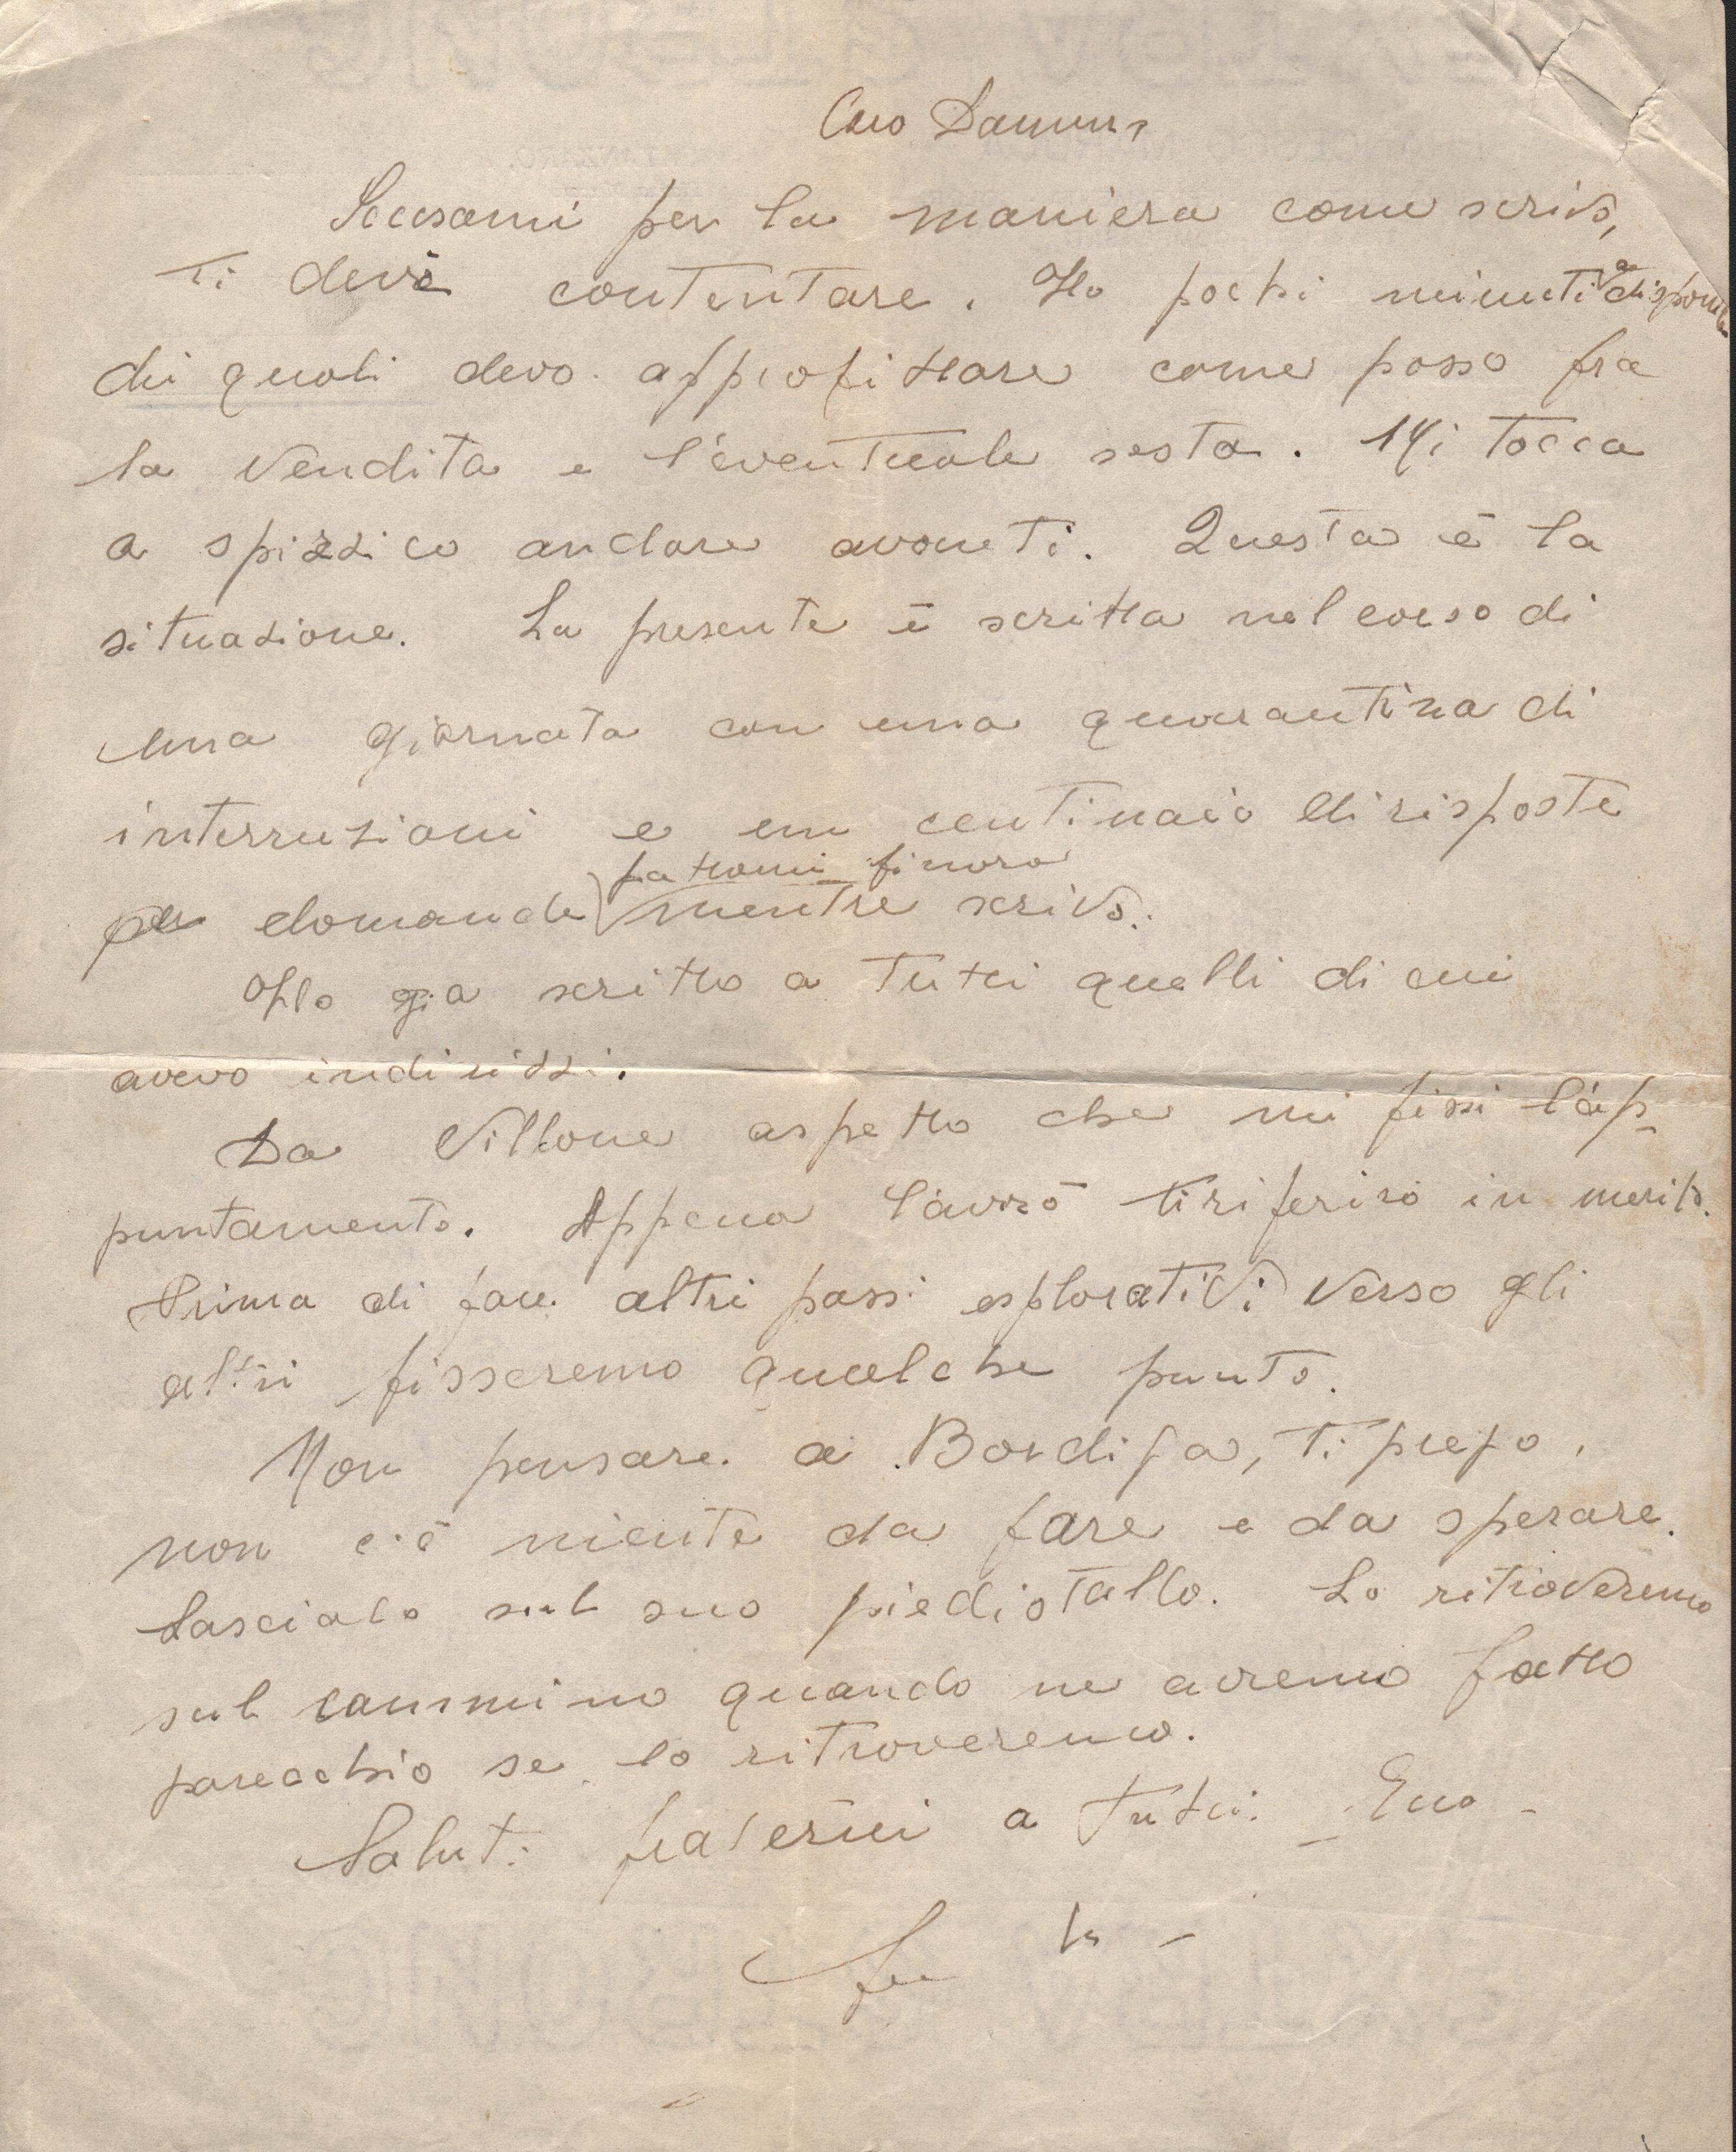 Caro Damen,
Scusami per la maniera come scrivo,
ti devi contentare. Ho pochi minuti a disposi
dei quali devo approfittare come posso fra
la vendita e l'eventuale sosta. Mi tocca
a spizzico andare avanti. Questa è la
situazione. La presente è scritta nel corso di
una giornata con una quarantina di
interruzioni e un centinaio di risposte
per domande fattomi finora
mentre scrivo.
Ho gia scritto a tutti quelli di cui
avevo indirizzi.
Da Villone aspetto che mi fissi l'ap-
puntamento. Appena l'avrò ti riferirò in merito.
Prima di fare altri passi esplorativi verso gli
altri fisseremo qualche punto.
Non pensare a Bordiga, ti prego,
non c'è niente da fare e da sperare.
Lascialo sul suo piedistallo. Lo ritroveremo
sul cammino quando ne avremo fatto
parecchio se lo ritroveremo.
Saluti fraterni a tutti.